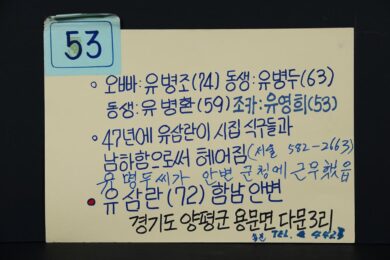 53
◦ 오빠: 유병조(74) 동생: 유병두(63)
동생: 유병환(59) 조카: 유영희(53)
◦ 47년에 유삼란이 시집 식구들과
남하함으로써 헤어짐(서울 582-2663)
유명두씨가 안변 군청에 근무했읍
• 유삼란(72) 함남안변
경기도 양평군 용문면 다문3리
TEL. 4423